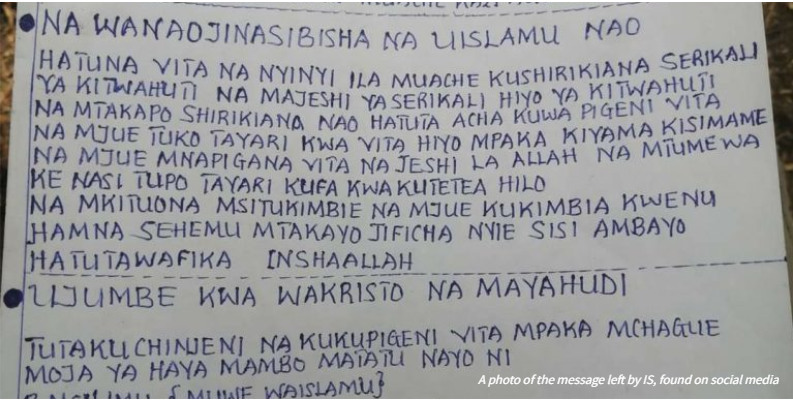 NA WANAOJINASIBISHA NA UISLAMU NAO
HATUNA VITA NA NYINYI ILA MUACHE KUSHIRIKIANA SERIKALI
YA KITWAHUTI NA MAJESHI YA SERIKALI HIYO YA KITWAHUTI
NA MTAKAPO SHIRIKIANA NAO HATUTA ACHA KUWA PIGENI VITA
NA MJUE TUKO TAYARI KWA VITA HIYO MPAKA KIYAMA KISIMAME
NA MJUE MNAPIGANA VITA NA JESHI LA ALLAH NA MTUMEWA
KE NASI TUPO TAYARI KUFA KWA KUTETEA HILO
NA MKITUONA MSITUKIMBIE NA MJUE KUKIMBIA KWENU
HAMNA SEHEMU MTAKAYO JIFICHA NYIE SISI AMBAYO
HATUTAWAFIKA INSHAALLAH
UJUMBE KWA WAKRISTO NA MAYAHUDI
TUTAKUCHINJENI NA KUKUPIGENI VITA MPAKA MCHAGUE
MOJA YA HAYA MAMBO MATATU NAYO NI
{MUWE WAISLAMU}
A photo of the message left by IS, found on social media